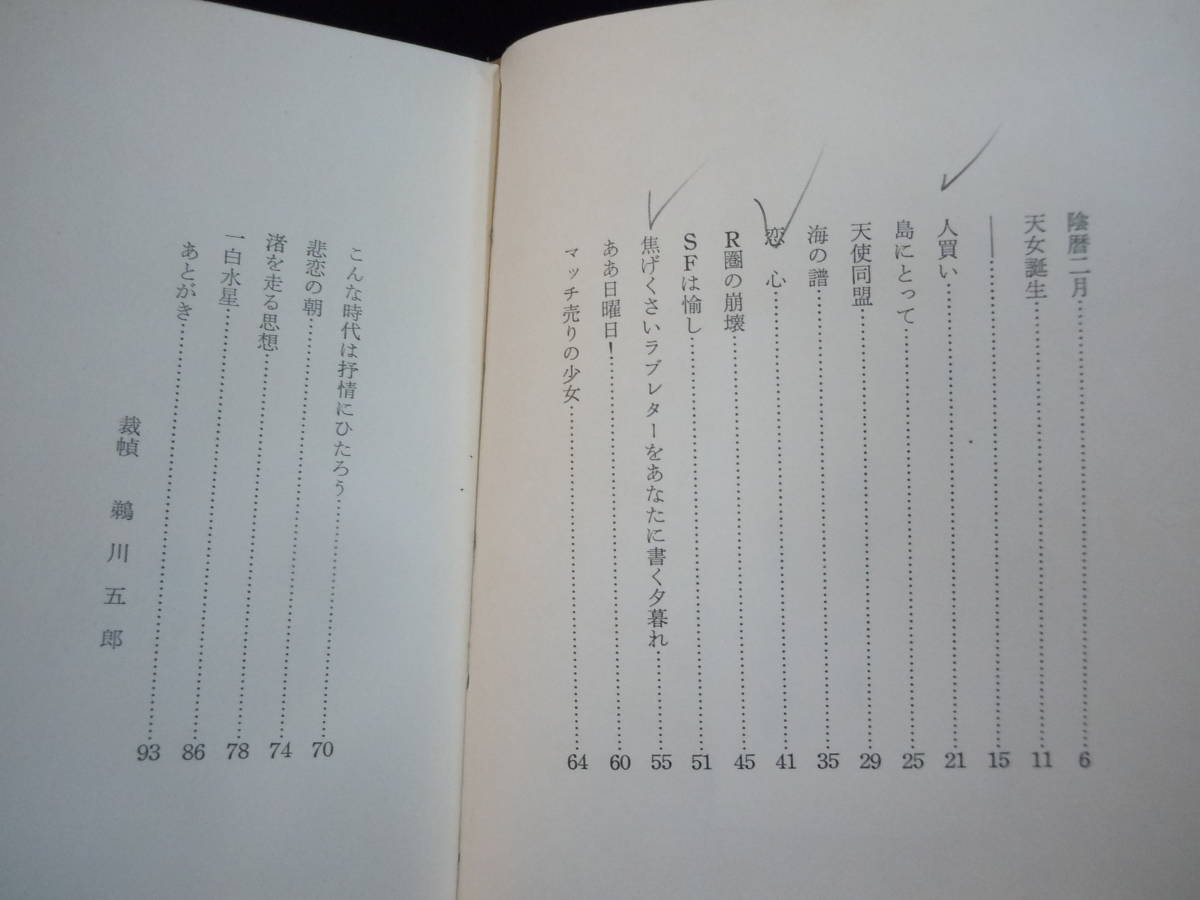 陰暦二月……………………6
天女誕生……………………11
――……………………15
人買い……………………21
島にとって……………………25
天使同盟……………………29
海の譜……………………35
恋心……………………41
R圏の崩壊……………………45
SFは愉し……………………51
焦げくさいラブレターをあなたに書く夕暮れ……55
ああ日曜日！……………………60
マッチ売りの少女……………………64
こんな時代は抒情にひたろう……………………70
悲恋の朝……………………74
渚を走る思想……………………78
一白水星……………………86
あとがき……………………93
裁幀 鵜川五郎